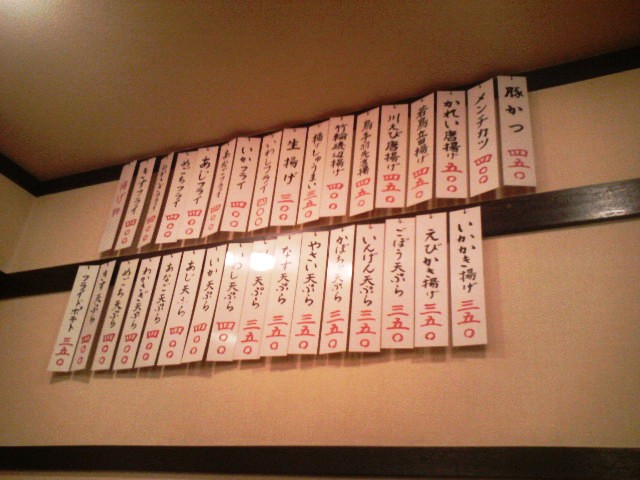 豚かつ 四五〇
メンチカツ 四〇〇
かれい唐揚げ 五〇〇
若鳥立田揚げ 四五〇
川えび唐揚げ 四五〇
鳥手羽先唐揚 四五〇
竹輪磯辺揚げ 四〇〇
揚げしゅうまい 三五〇
生揚げ 三〇〇
いわしフライ 四〇〇
いかフライ 四〇〇
あじフライ 四〇〇
めごちフライ 四〇〇
きすフライ 四〇〇
揚げ物
いかかき揚げ 三五〇
えびかき揚げ 三五〇
ごぼう天ぷら 三五〇
いんげん天ぷら 三五〇
かぼちゃ天ぷら 三五〇
やさい天ぷら 三五〇
なす天ぷら 三五〇
天ぷら 三五〇
いわし天ぷら 四〇〇
いか天ぷら 四〇〇
あじ天ぷら 四〇〇
あなご天ぷら 四〇〇
わかさぎ天ぷら 四〇〇
めごち天ぷら 四〇〇
きす天ぷら 四〇〇
フライドポテト 三五〇